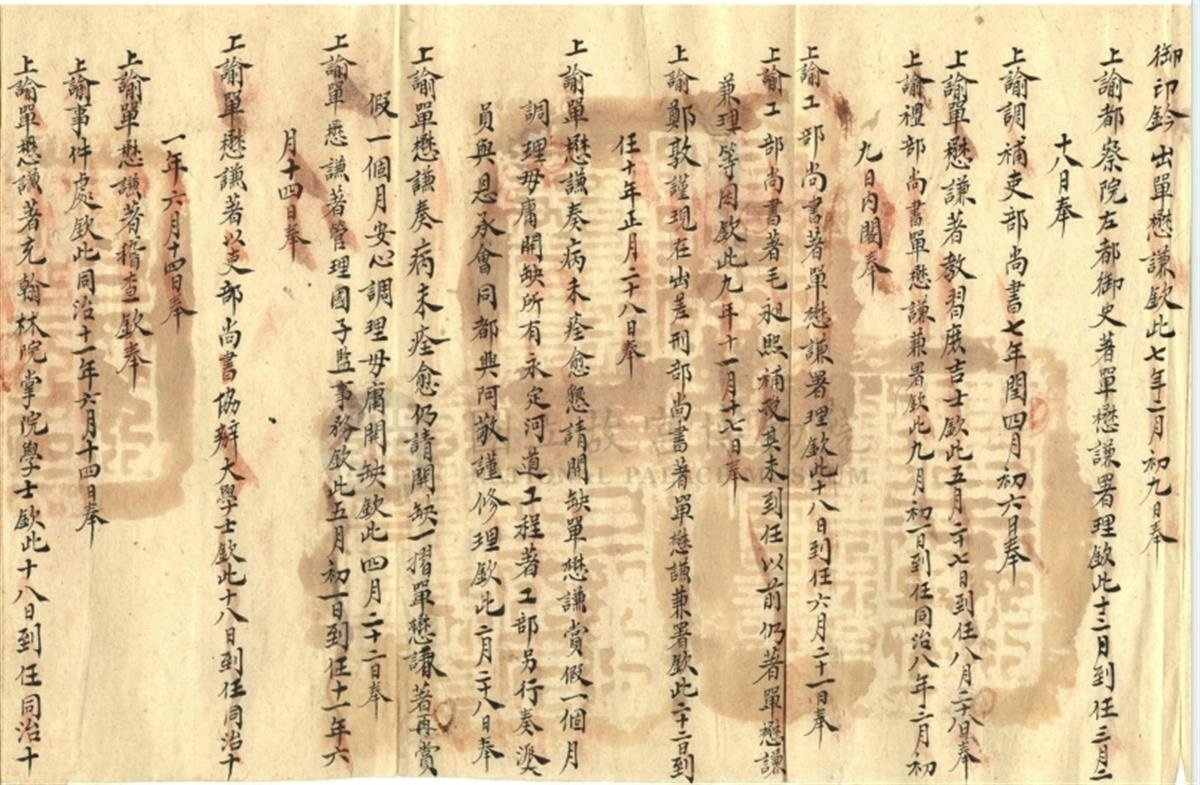 御印鈐出單懋謙欽此七年二月初九日奉
上諭都察院左都御史著單懋謙署理欽此十二日到任三月二
十八日奉
上諭調補吏部尚書七年閏四月初六日奉
上諭單懋謙著教習庶吉士欽此五月二十七日到任八月二十八日奉
上諭禮部尚書單懋謙兼署欽此九月初一日到任同治八年三月初
九日內閣奉
上諭工部尚書著單懋謙署理欽此十八日到任六月二十一日奉
上諭工部尚書著毛昶熙補授其未到任以前仍著單懋謙
兼理等因欽此九年十一月十七日奉
上諭鄭敦謹現在出差刑部尚書著單懋謙兼署欽此二十二日到
任十年正月二十八日奉
上諭單懋謙奏病未痊愈懇請開缺單懋謙賞假一個月
調理毋庸開缺所有永定河道工程著工部另行奏派
員與恩承會同都興阿敬謹修理欽此二月二十八日奉
上諭單懋謙奏病未痊愈仍請開缺一摺單懋謙著再賞
假一個月安心調理毋庸開缺欽此四月二十二日奉
上諭單懋謙著管理國子監事務欽此五月初一日到任十一年六
月十四日奉
上諭單懋謙著以吏部尚書協辦大學士欽此十八日到任同治十
一年六月十四日奉
上諭單懋謙著稽查欽奉
上諭事件處欽此同治十一年六月十四日奉
上諭單懋謙著充翰林院掌院學士欽此十八日到任同治十
國立故宮博物院
NATIONAL PALACE MUSEUM